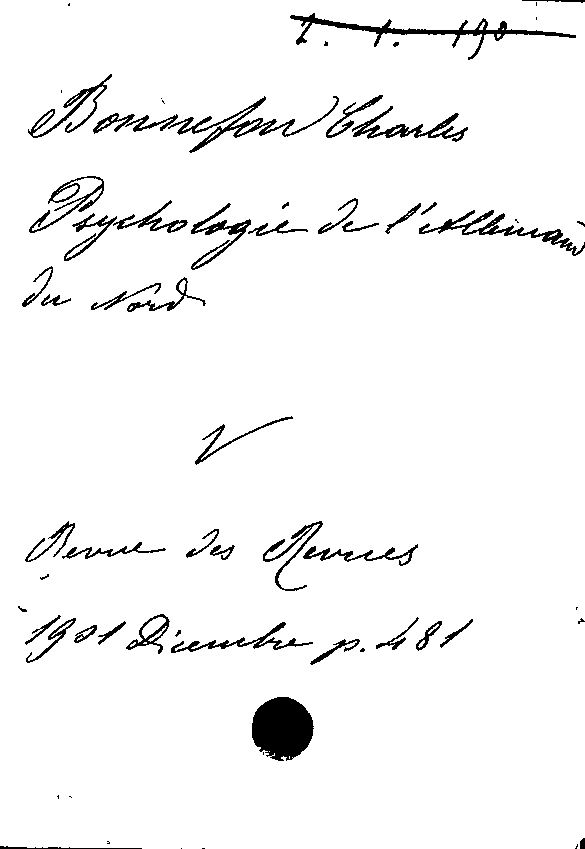 2. 1. 190
Bonnefon Charles
Psychologie de l'Allemand
du Nord
V
Revue des Revues
1901 Dicembre p. 481